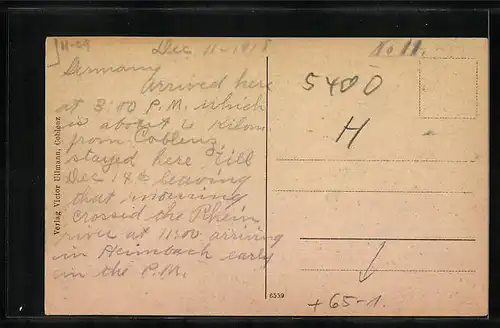 11-09
Dec 11-1918
No 11.
Germany
Arrived here
at 3:00 P.M. which
is about 4 Kilom
from Coblenz,
stayed here till
Dec 14th leaving
that morning
crossed the Rhein
river at 11:00 arriving
in Heimbach early
in the P.M.
Verlag Victor Ullmann, Coblenz
5400
H
6559
+65-1.